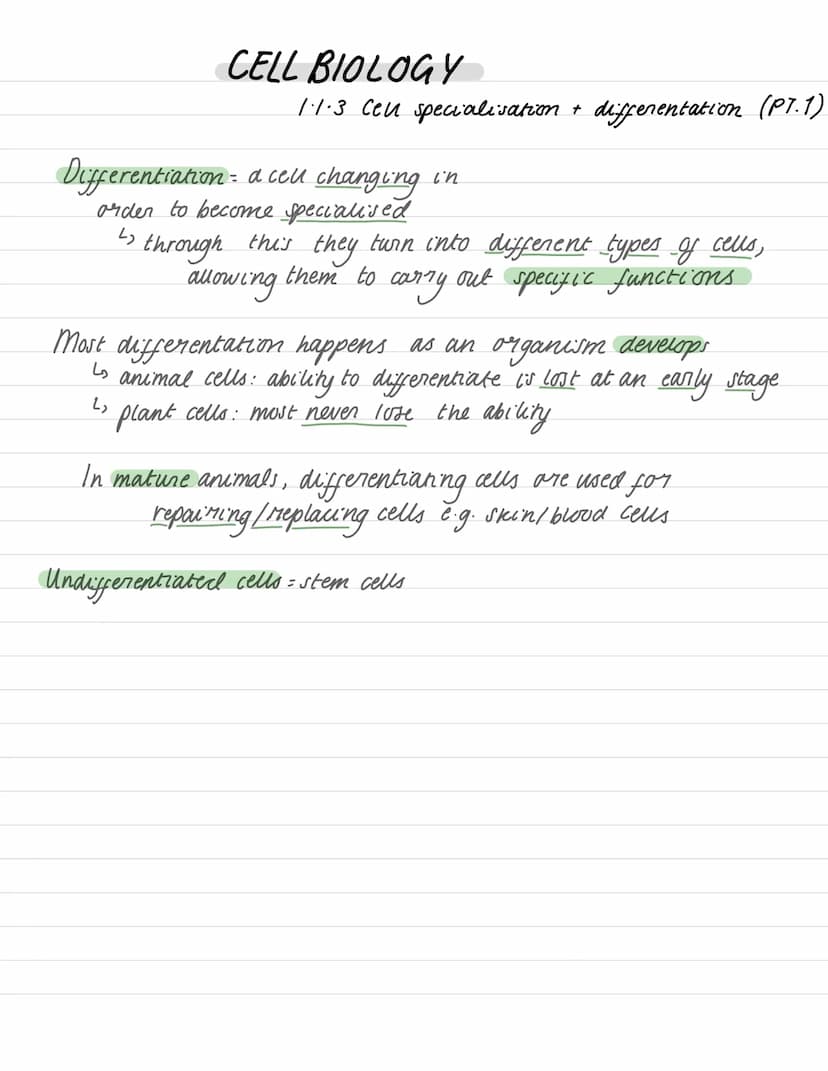 CELL BIOLOGY
1.1.3 Cell specialisation + differentation (PT.1)
Differentiation = a cell changing in
order to become specialised
↳ through this they turn into different types of cells,
allowing them to carry out specific functions
Most differentation happens as an organism develops
↳ animal cells: ability to differentiate is lost at an early stage
↳ plant cells: most never lose the ability
In mature animals, differentiating cells are used for
repairing/replacing cells e.g. skin/blood cells
Undifferentiated cells = stem cells